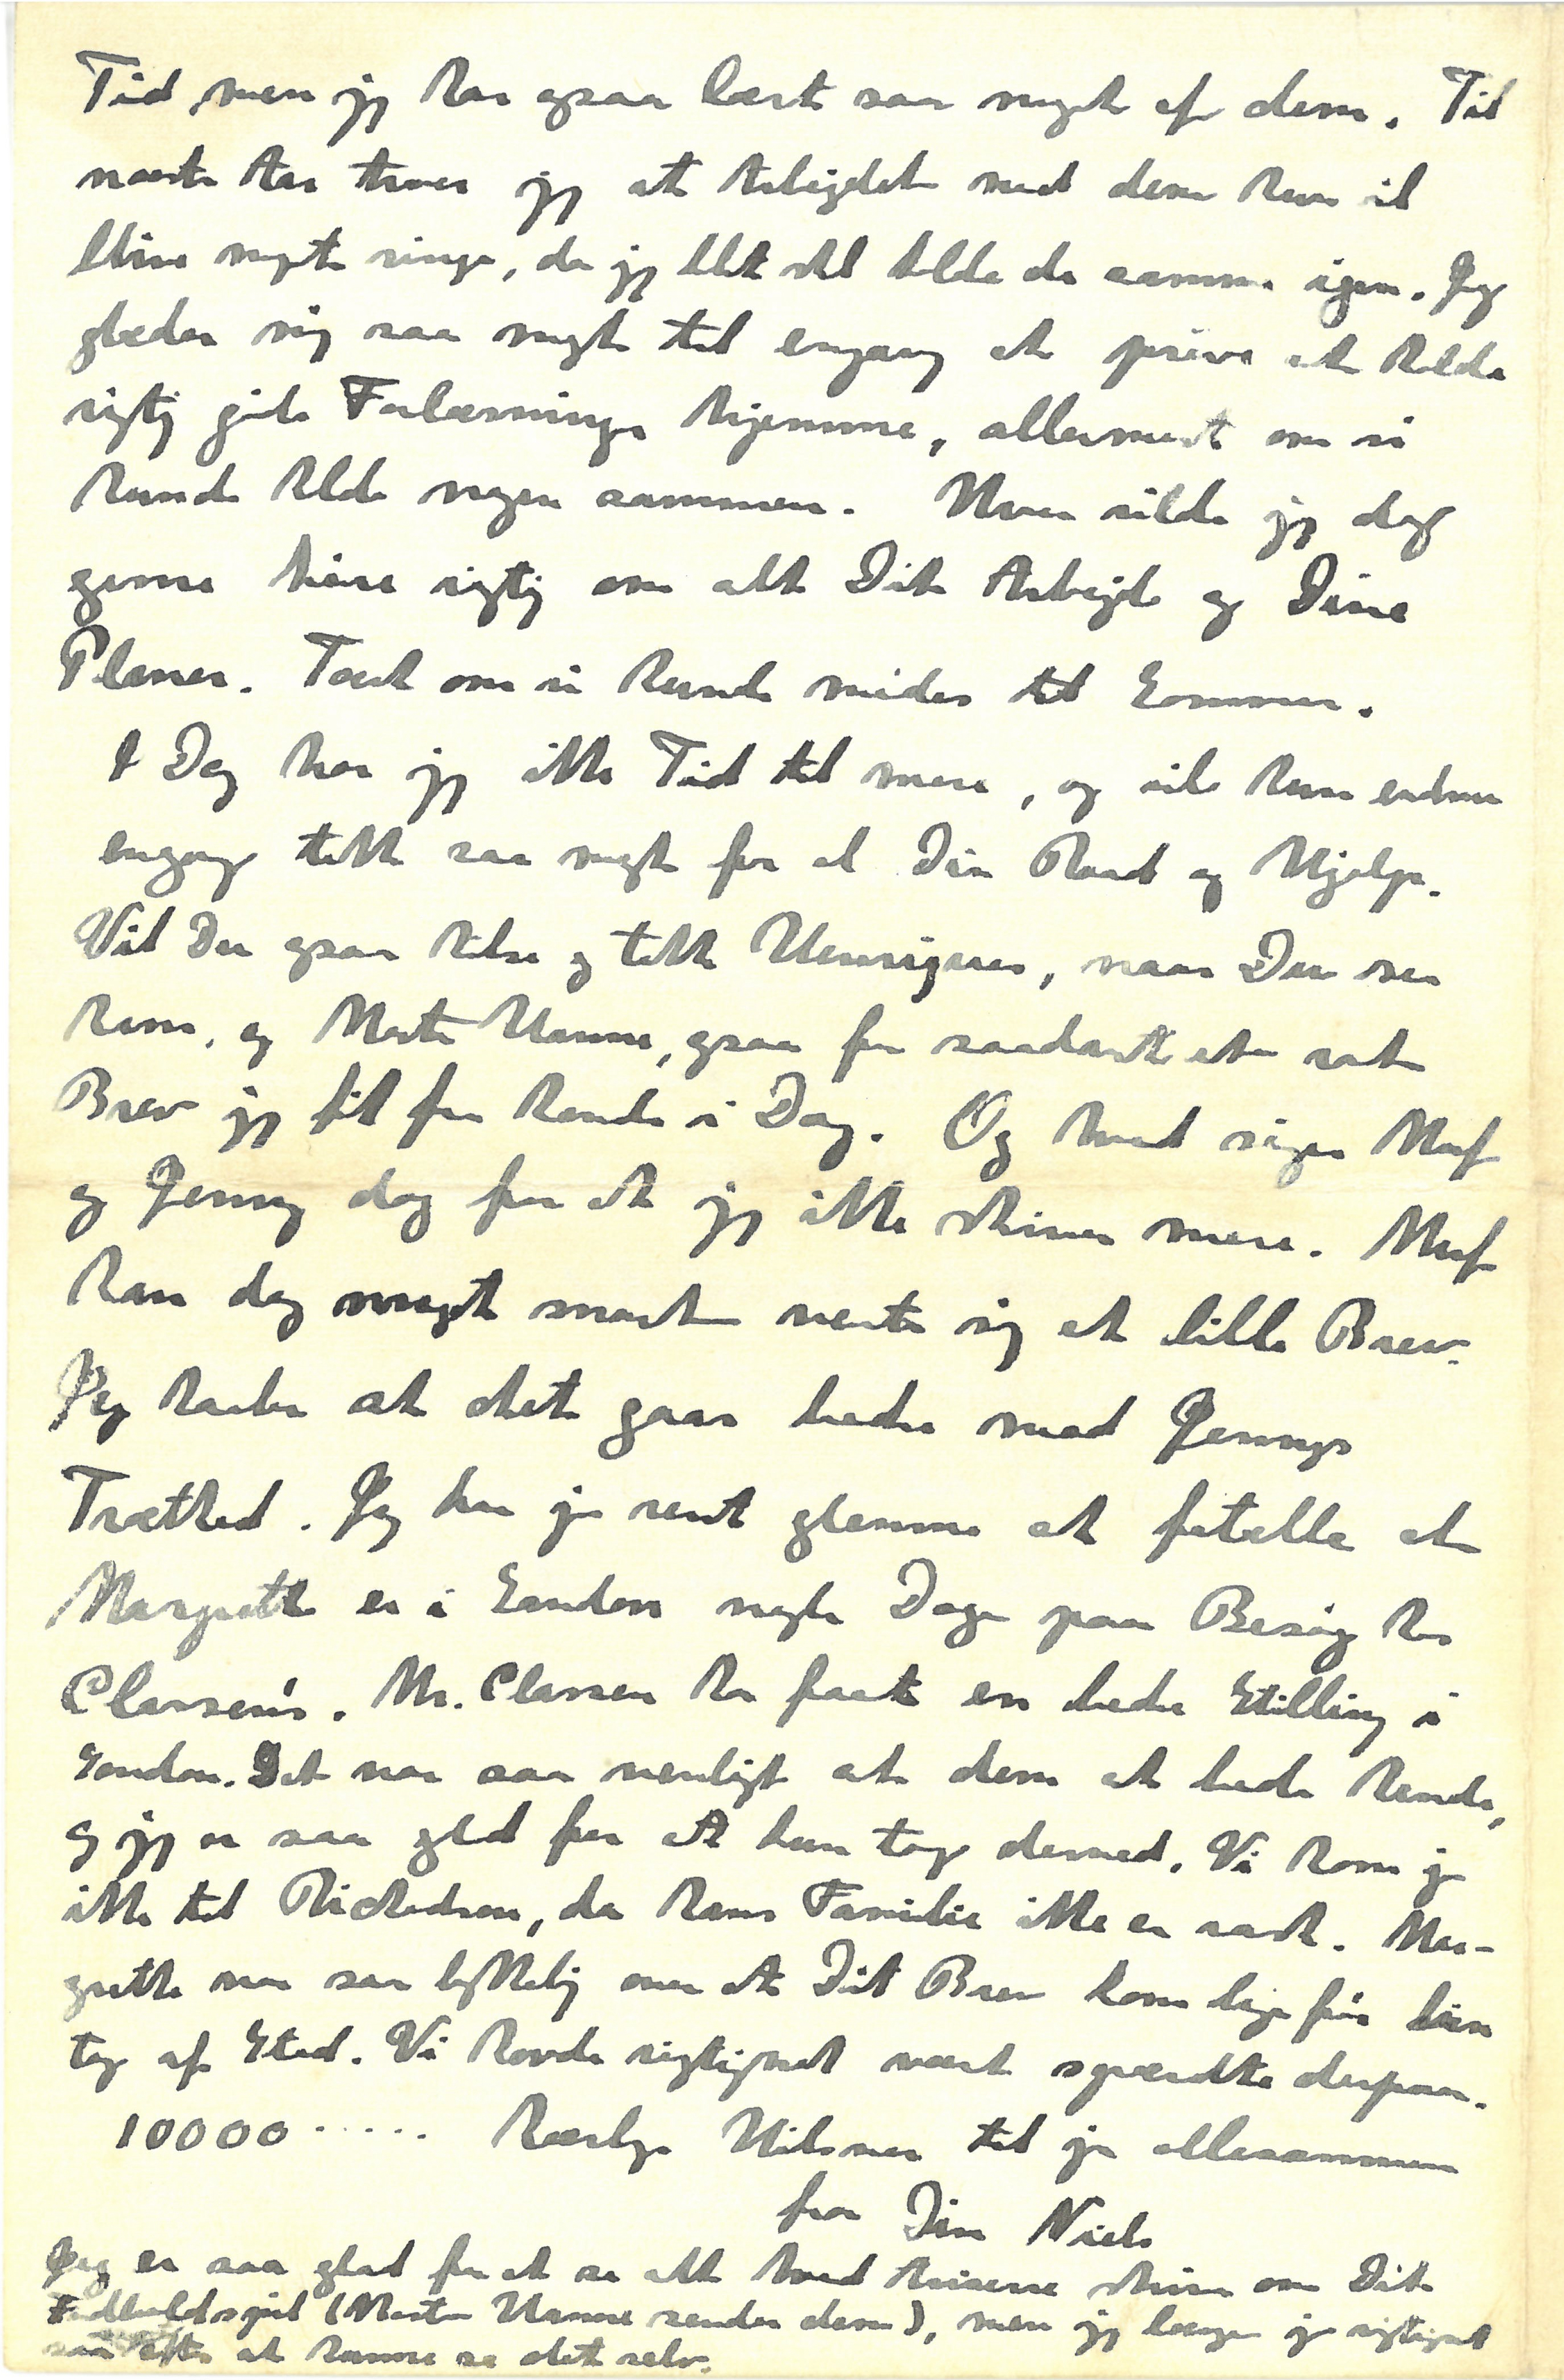 Tid, men jeg har ogsaa lært saa meget af dem. Til
næste Aar tror jeg at Arbejdet med dem kun vil
blive meget ringe, da jeg blot skal holde de samme igen. Jeg
glæder mig saa meget til engang at prøve at holde
rigtig gode Forelæsninger hjemme, allermest om vi
kunde holde nogen sammen. Hvor vilde jeg dog
gerne høre rigtig om alt Dit Arbejde og Dine
Planer. Tænk om vi kunde mødes til Sommer.
I Dag har jeg ikke Tid til mere, og vil kun endnu
engang takke saa meget for al Din Raad og Hjælp.
Vil Du ogsaa hilse og takke Henriques, naar Du ser
ham, og Moster Hanne, ogsaa for saadant et rart
Brev jeg fik fra hende i Dag. Og hvad siger Muf
og Jenny dog for at jeg ikke skriver mere. Muf
kan dog meget snart vente sig et lille Brev.
Jeg haaber at det gaar bedre med Jennys
Træthed. Jeg har jo rent glemme at fortælle at
Margrethe er i London nogle Dage paa Besøg hos
Classen's. Mr. Classen har faaet en bedre Stilling i
London. Det var saa venligt af dem at bede hende,
og jeg er saa glad for at hun tog derned. Vi kom jo
ikke til Richardson, da hans Familie ikke er rask. Mar-
grethe var saa lykkelig over at Dit Brev kom lige før hun
tog af Sted. Vi havde rigtignok været spændte derpaa.
10000..... kærlige Hilsner til jer allesammen
fra Din Niels
Jeg er saa glad for at se alt hvad Aviserne skriver om Dit
Fodboldspil (Moster Hanne sender dem), men jeg længes jo rigtignok
saa efter at kunne se det selv.